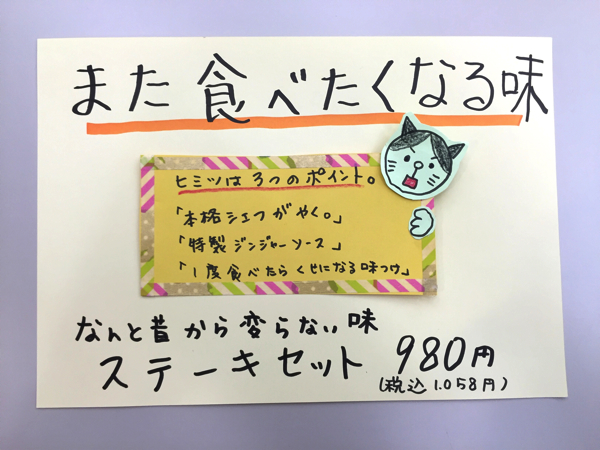 また食べたくなる味
ヒミツは3つのポイント。
「本格シェフがやく。」
「特製ジンジャーソース」
「1度食べたらくせになる味つけ」
なんと昔から変らない味
ステーキセット 980円
(税込1.058円)